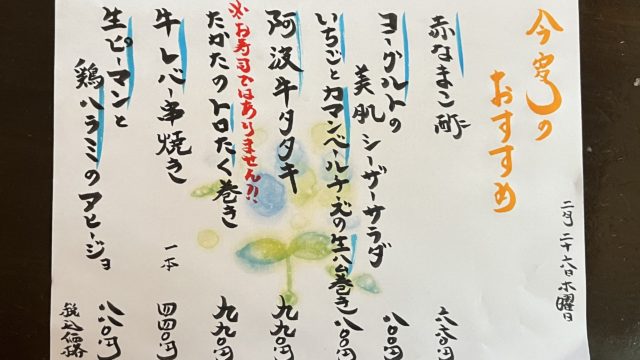 二月二十六日 木曜日
今宵の
おすすめ
赤なまこ酢
ヨーグルトの
美肌 シーザーサラダ
いちごとカマンベールチーズの生ハム巻き
阿波牛タタキ 九九〇円
※お寿司ではありません!!
たかたのトロたく巻き 九九〇円
牛レバー串焼き 一本 四四〇円
生ピーマンと
鶏ハラミのアヒージョ 八八〇円
税込価格